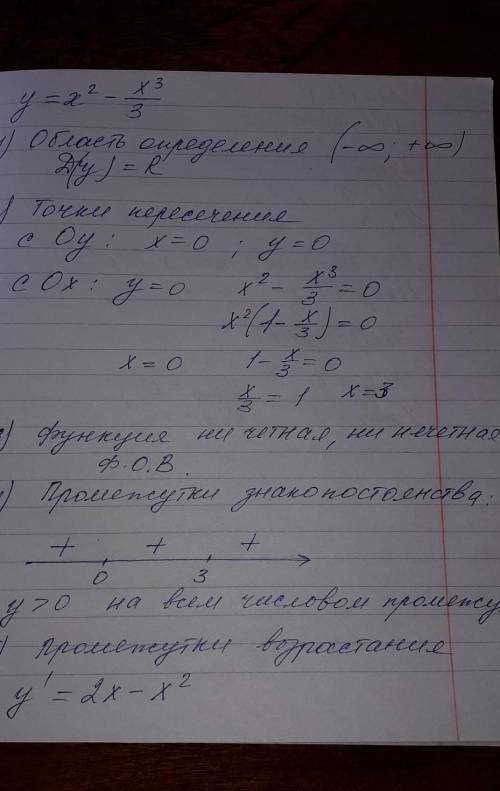 y = x² - x³/3
) Область определения (-∞; +∞)
D(y) = R
) Точки пересечения
с Oy : x = 0 ; y = 0
с Ox : y = 0 x² - x³/3 = 0
x²(1 - x/3) = 0
x = 0 1 - x/3 = 0
x/3 = 1 x = 3
) Функция ни четная, ни нечетная
Ф.О.В.
) Промежутки знакопостоянства:
+ + +
0 3
y > 0 на всем числовом промежу
) Промежутки возрастания
y' = 2x - x²